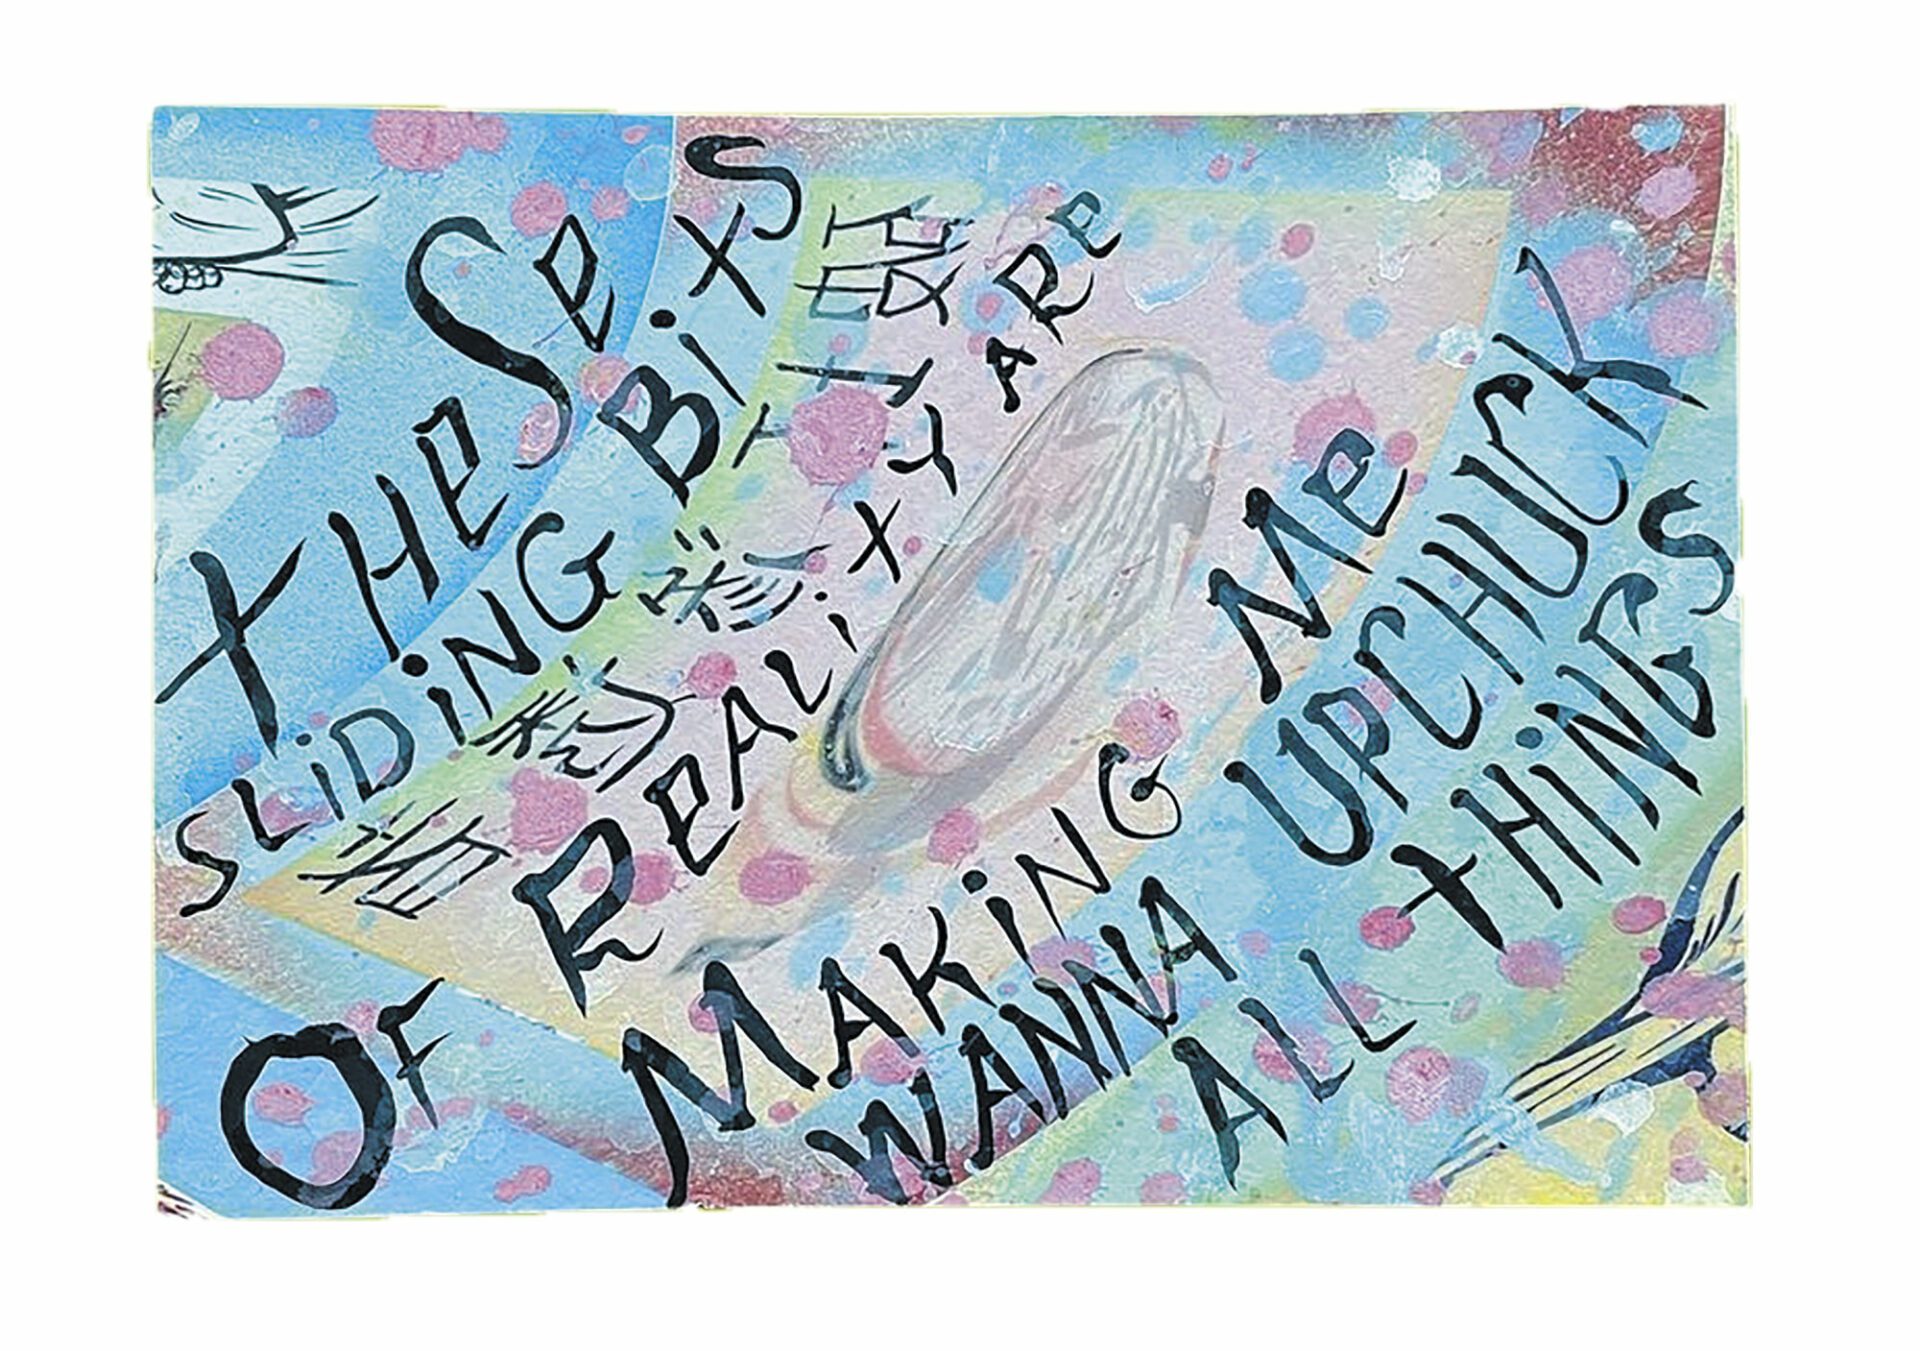 tHeSe
SLiDiNG BitS
OF ReALitY ARe
MAKiNG Me
WANNA UPCHUCK
ALL tHiNGS